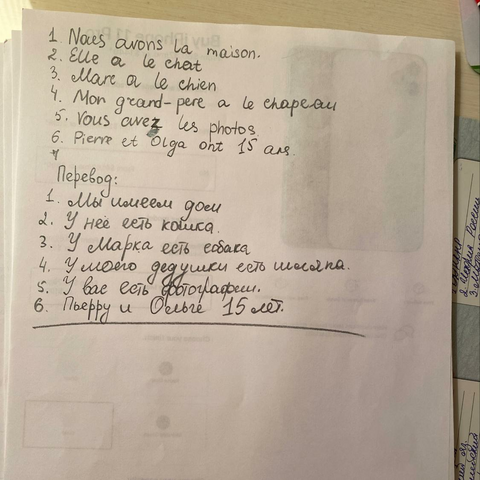 1 Nous avons la maison.
2. Elle a le chat
3. Marc a le chien
4. Mon grand-pere a le chapeau
5. Vous avez les photos.
6. Pierre et Olga ont 15 ans.
Перевод:
1. Мы имеем дом
2. У неё есть кошка.
3. У Марка есть собака
4. У моего дедушки есть шляпа.
5. У вас есть фотографии.
6. Пьерру и Ольге 15 лет.
Buy iPhone 11 Pro
2. История России